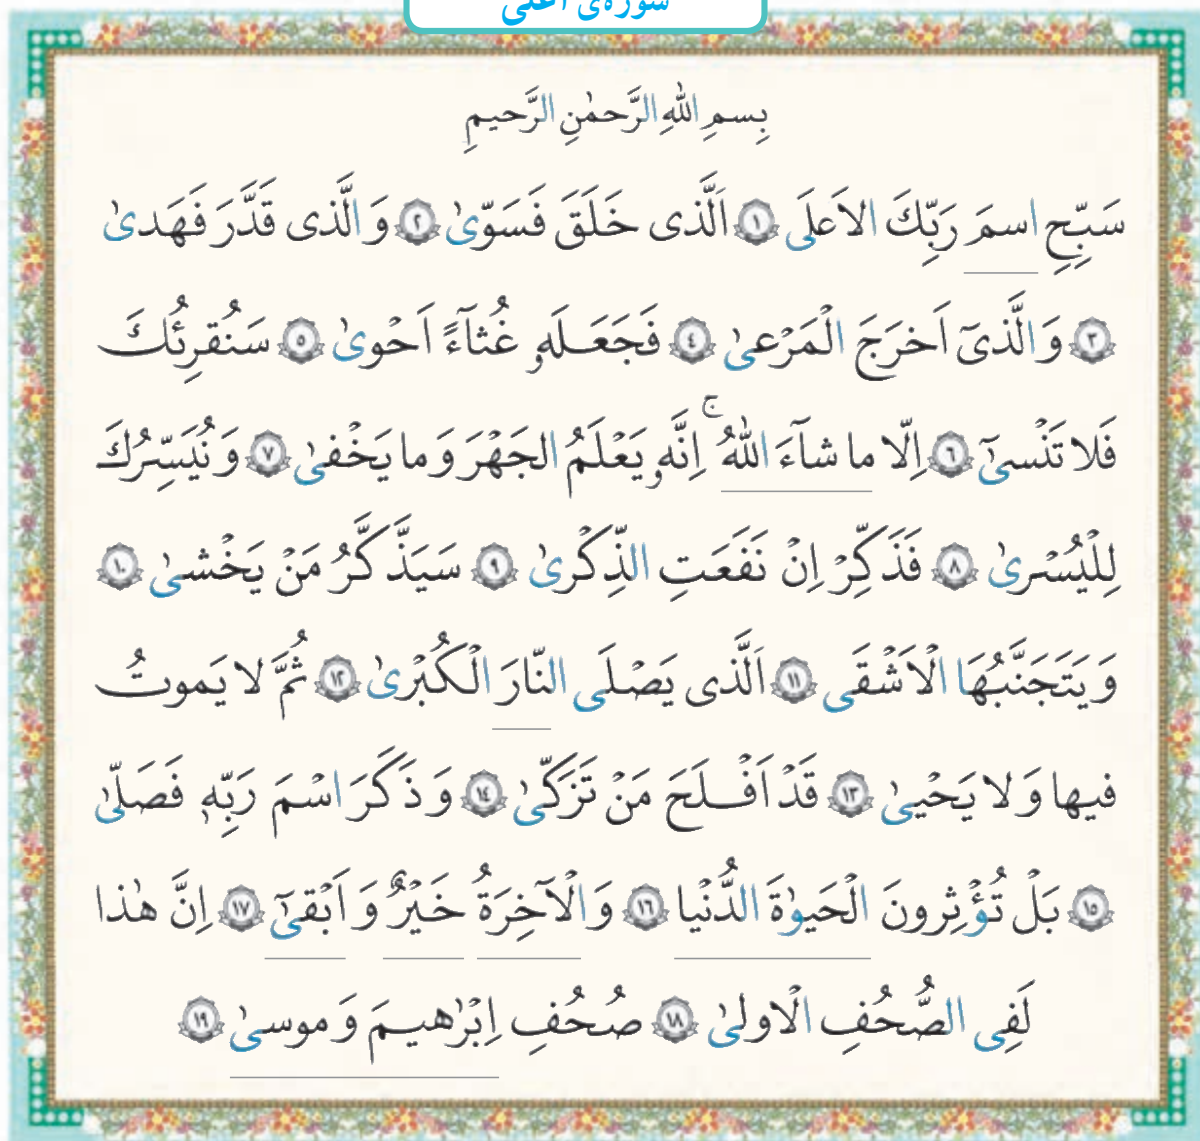 سوره‌ی اعلی
بِسمِ اللّٰهِ الرَّحمٰنِ الرَّحیمِ
سَبِّحِ اسمَ رَبِّكَ الاَعلَی ﴿١﴾ اَلَّذی خَلَقَ فَسَوّیٰ ﴿٢﴾ وَ الَّذی قَدَّرَ فَهَدیٰ
﴿٣﴾ وَ الَّذیٓ اَخرَجَ الْمَرْعیٰ ﴿٤﴾ فَجَعَلَهو غُثآءً اَحْویٰ ﴿٥﴾ سَنُقرِئُكَ
فَلا تَنْسیٰٓ ﴿٦﴾ اِلّا ما شآءَ اللّٰهُ ۚ اِنَّهو یَعْلَمُ الجَهْرَ وَ ما یَخْفیٰ ﴿٧﴾ وَ نُیَسِّرُكَ
لِلْیُسْریٰ ﴿٨﴾ فَذَكِّرْ اِنْ نَفَعَتِ الذِّكْریٰ ﴿٩﴾ سَیَذَّكَّرُ مَنْ یَخْشیٰ ﴿١٠﴾
وَ یَتَجَنَّبُهَا الْاَشْقَی ﴿١١﴾ اَلَّذی یَصْلَی النّارَ الْكُبْریٰ ﴿١٢﴾ ثُمَّ لا یَموتُ
فیها وَ لا یَحْییٰ ﴿١٣﴾ قَدْ اَفْلَحَ مَنْ تَزَكّیٰ ﴿١٤﴾ وَ ذَكَرَ اسْمَ رَبِّهٖ فَصَلّیٰ
﴿١٥﴾ بَلْ تُؤْثِرونَ الْحَیوٰةَ الدُّنْیا ﴿١٦﴾ وَ الْآخِرَةُ خَیْرٌ وَ اَبْقیٰٓ ﴿١٧﴾ اِنَّ هٰذا
لَفِی الصُّحُفِ الْاولیٰ ﴿١٨﴾ صُحُفِ اِبْرٰهیمَ وَ موسیٰ ﴿١٩﴾